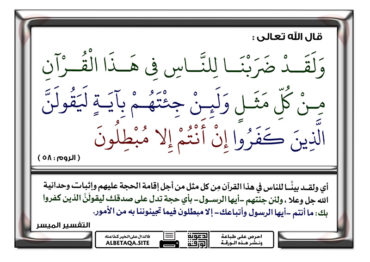 قال الله تعالى :
وَلَقَدْ ضَرَبْنَا لِلنَّاسِ فِي هَذَا الْقُرْآنِ
مِنْ كُلِّ مَثَلٍ وَلَئِنْ جِئْتَهُمْ بِآيَةٍ لَيَقُولَنَّ
الَّذِينَ كَفَرُوا إِنْ أَنْتُمْ إِلا مُبْطِلُونَ
( الروم : ٥٨ )
أي ولقد بينَّا للناس في هذا القرآن مِن كل مثل من أجل إقامة الحجة عليهم وإثبات وحدانية
الله جل وعلا ، ولئن جئتهم -أيها الرسول- بأي حجة تدل على صدقك ليقولَنَّ الذين كفروا
بك: ما أنتم -أيها الرسول وأتباعك- إلا مبطلون فيما تجيئوننا به من الأمور.
التفسير الميسر
احرص على طباعة
ونشر هذه الورقة
فالدال على الخير كفاعله
ALBETAQA.SITE